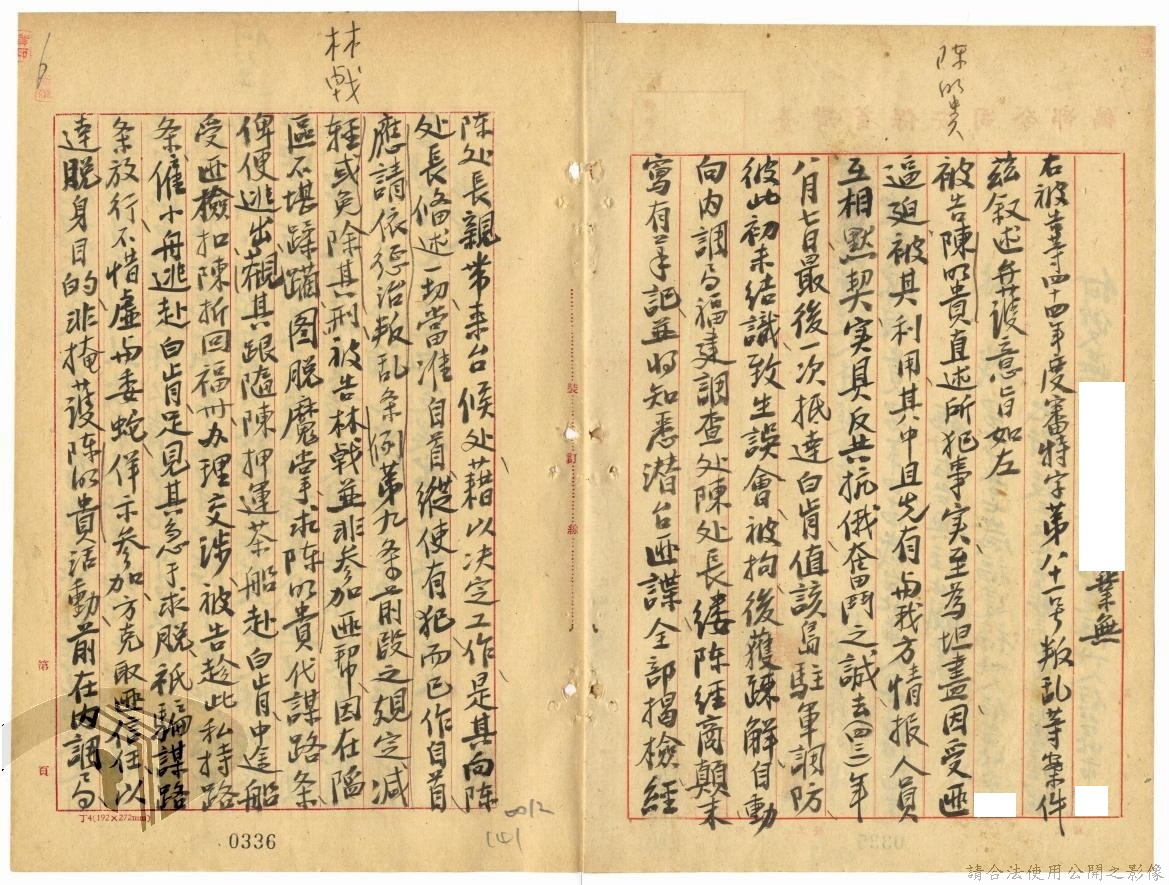 陳明貴
業無
右被告等四十四年度審特字第八十一号叛乱等案件
茲叙述弁護意旨如左
被告陳明貴直述所犯事実至為坦盡因受匪
逼廹被其利用其中且先有与我方情报人員
互相默契実具反共抗俄奮鬥之誠去(四三)年
八月七日最後一次抵達白肯值該島駐軍調防
彼此初未結識致生誤會被拘後獲疎解自動
向内調局福建調查处陳处長縷陈經商顛末
寫有筆記並将知悉潜台匪諜全部揭檢經
裝 訂 線
林戟
陈处長親帶来台候处藉以决定工作是其向陈
处長偹述一切當准自首縱使有犯而已作自首
應請依徳治叛乱条例第九条前段之規定减
軽或免除其刑被告林戟並非参加匪帮因在陥
區不堪蹂躏图脱魔掌求陈明貴代謀路条
俾便逃出觀其跟隨陳押運茶船赴白肯中途船
受匪檢扣陳折回福州办理交涉被告趁此私持路
条僱小舟逃赴白肯足見其急于求脱祇騙謀路
条放行不惜虛与委蛇佯示参加方克取匪信任以
達脱身目的非掩護陈明貴活動前在内調局
第 頁
丁4(192×272mm)
0336
0012
(4)
6
請合法使用公開之影像